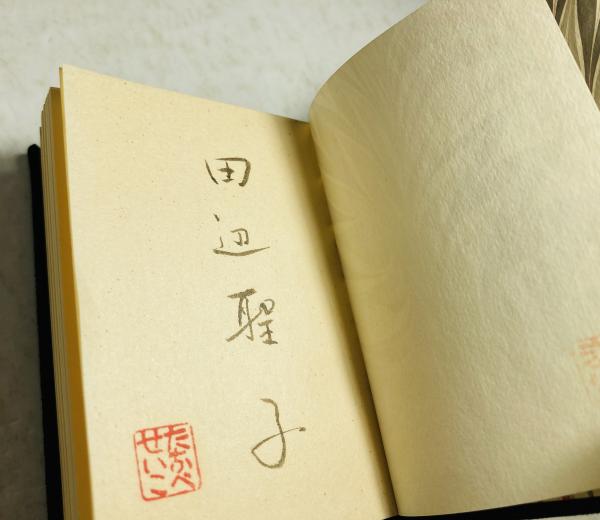 田辺聖子
たなべ
せいこ